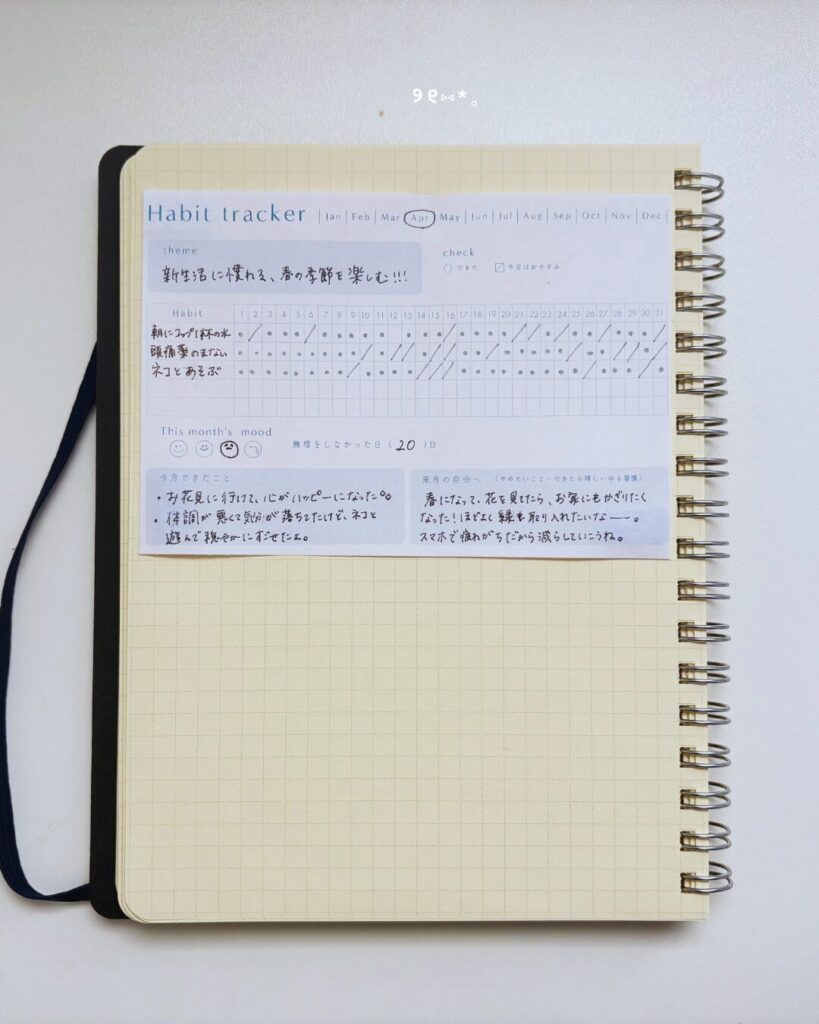 Habit tracker | Jan | Feb | Mar | Apr | May | Jun | Jul | Aug | Sep | Oct | Nov | Dec |
theme
新生活に慣れる、春の季節を楽しむ!!!
check
できた 今日はおやすみ
Habit 1 2 3 4 5 6 7 8 9 10 11 12 13 14 15 16 17 18 19 20 21 22 23 24 25 26 27 28 29 30 31
朝にコップ1杯の水
頭痛薬のまない
ネコとあそぶ
This month's mood
無理をしなかった日 ( 20 ) 日
今月できたこと
・お花見に行けて、心がハッピーになった
・体調が悪くて気分が落ちてたけど、ネコと
遊んで穏やかにすごせたよ。
来月の自分へ (やめたいこと・できたら嬉しいゆる習慣)
春になって、花を見てたら、お家にもかざりたく
なった!ほどよく緑も取り入れたいなー。
スマホで疲れがちだから減らしていこうね。